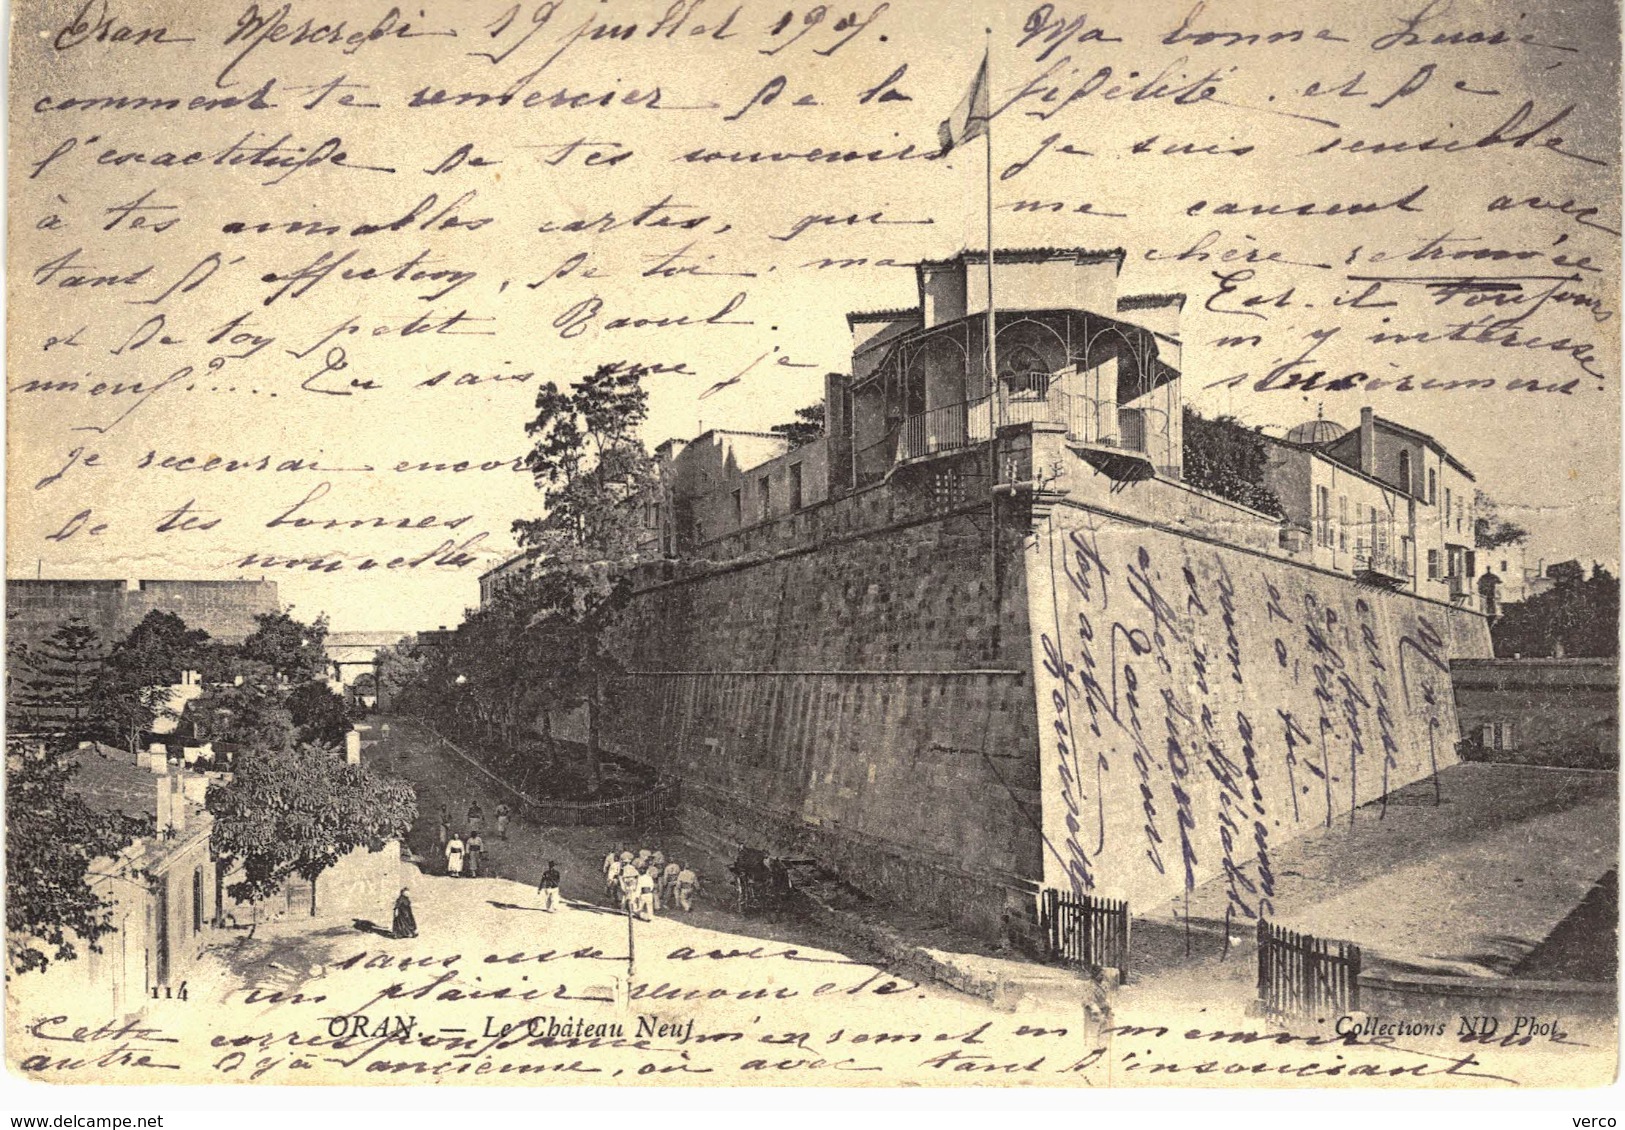 Oran Mercredi 19 juillet 1905. Ma bonne Lucie,
comment te remercier de la fidélité, et de
l'exactitude de tes souvenirs. Je suis sensible
à tes aimables cartes, qui me causent avec
tant d'affection, de toi, ma chère retrouvée
et de toy petit Raoul. Est-il toujours
mieux?.... Tu sais que je m'y intéresse
sincèrement.
Je recevrai encore
de tes bonnes
nouvelles
sans cesse avec
un plaisir renouvelé.
Cette correspondance m'en remet en mémoire une
autre déjà ancienne, où avec tant d'insouciant
Mme
caresse
à ton
chéri!
et à toi
mon ancienne
et ma
affectionné
toy amie
114 ORAN. — Le Château Neuf
Collections ND Phot.
delcampe.net
verco